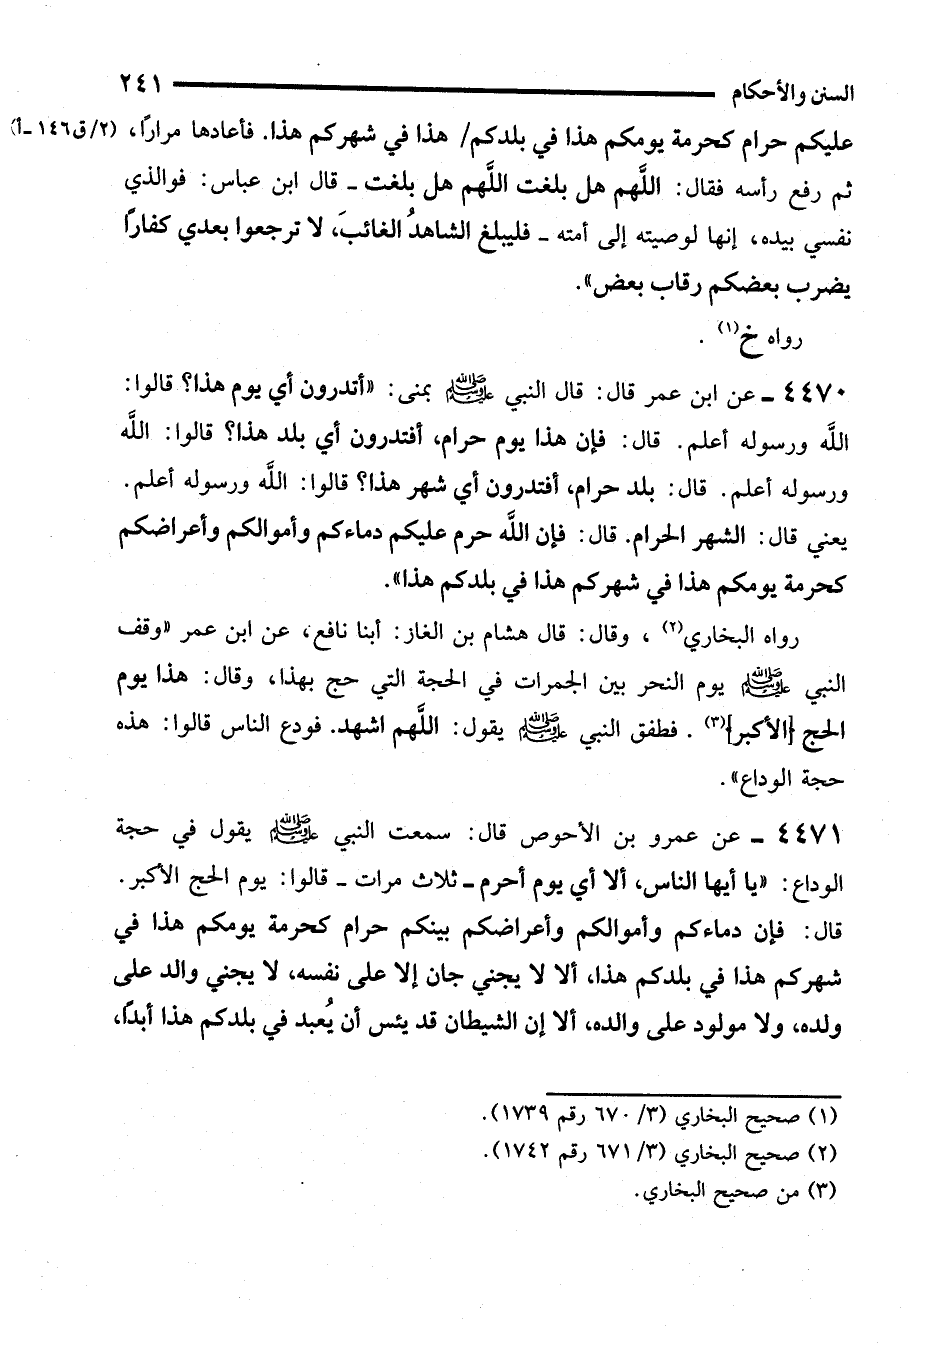 السنن والأحكام ٢٤١
عليكم حرام كحرمة يومكم هذا في بلدكم/ هذا في شهركم هذا. فأعادها مرارًا، (٢/ق١٤٦-أ)
ثم رفع رأسه فقال: اللَّهم هل بلغت اللَّهم هل بلغت - قال ابن عباس: فوالذي
نفسي بيده، إنها لوصيته إلى أمته - فليبلغ الشاهدُ الغائبَ، لا ترجعوا بعدي كفارًا
يضرب بعضكم رقاب بعض».
رواه خ(١) .
٤٤٧٠ - عن ابن عمر قال: قال النبي ﷺ بمنى: «أتدرون أي يوم هذا؟ قالوا:
اللَّه ورسوله أعلم. قال: فإن هذا يوم حرام، أفتدرون أي بلد هذا؟ قالوا: اللَّه
ورسوله أعلم. قال: بلد حرام، أفتدرون أي شهر هذا؟ قالوا: اللَّه ورسوله أعلم.
يعني قال: الشهر الحرام. قال: فإن اللَّه حرم عليكم دماءكم وأموالكم وأعراضكم
كحرمة يومكم هذا في شهركم هذا في بلدكم هذا».
رواه البخاري(٢) ، وقال: قال هشام بن الغاز: أبنا نافع، عن ابن عمر «وقف
النبي ﷺ يوم النحر بين الجمرات في الحجة التي حج بهذا، وقال: هذا يوم
الحج {الأكبر}(٣) . فطفق النبي ﷺ يقول: اللَّهم اشهد. فودع الناس قالوا: هذه
حجة الوداع».
٤٤٧١ - عن عمرو بن الأحوص قال: سمعت النبي ﷺ يقول في حجة
الوداع: «يا أيها الناس، ألا أي يوم أحرم - ثلاث مرات - قالوا: يوم الحج الأكبر.
قال: فإن دماءكم وأموالكم وأعراضكم بينكم حرام كحرمة يومكم هذا في
شهركم هذا في بلدكم هذا، ألا لا يجني جان إلا على نفسه، لا يجني والد على
ولده، ولا مولود على والده، ألا إن الشيطان قد يئس أن يُعبد في بلدكم هذا أبدًا،
(١) صحيح البخاري (٣/ ٦٧٠ رقم ١٧٣٩).
(٢) صحيح البخاري (٣/ ٦٧١ رقم ١٧٤٢).
(٣) من صحيح البخاري.